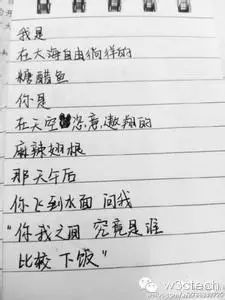 我是
在大海自由徜徉的
糖醋鱼
你是
在天空恣意遨翔的
麻辣翅根
那天午后
你飞到水面 问我
“你我之间 究竟是谁
比较 下饭”
w3ctech